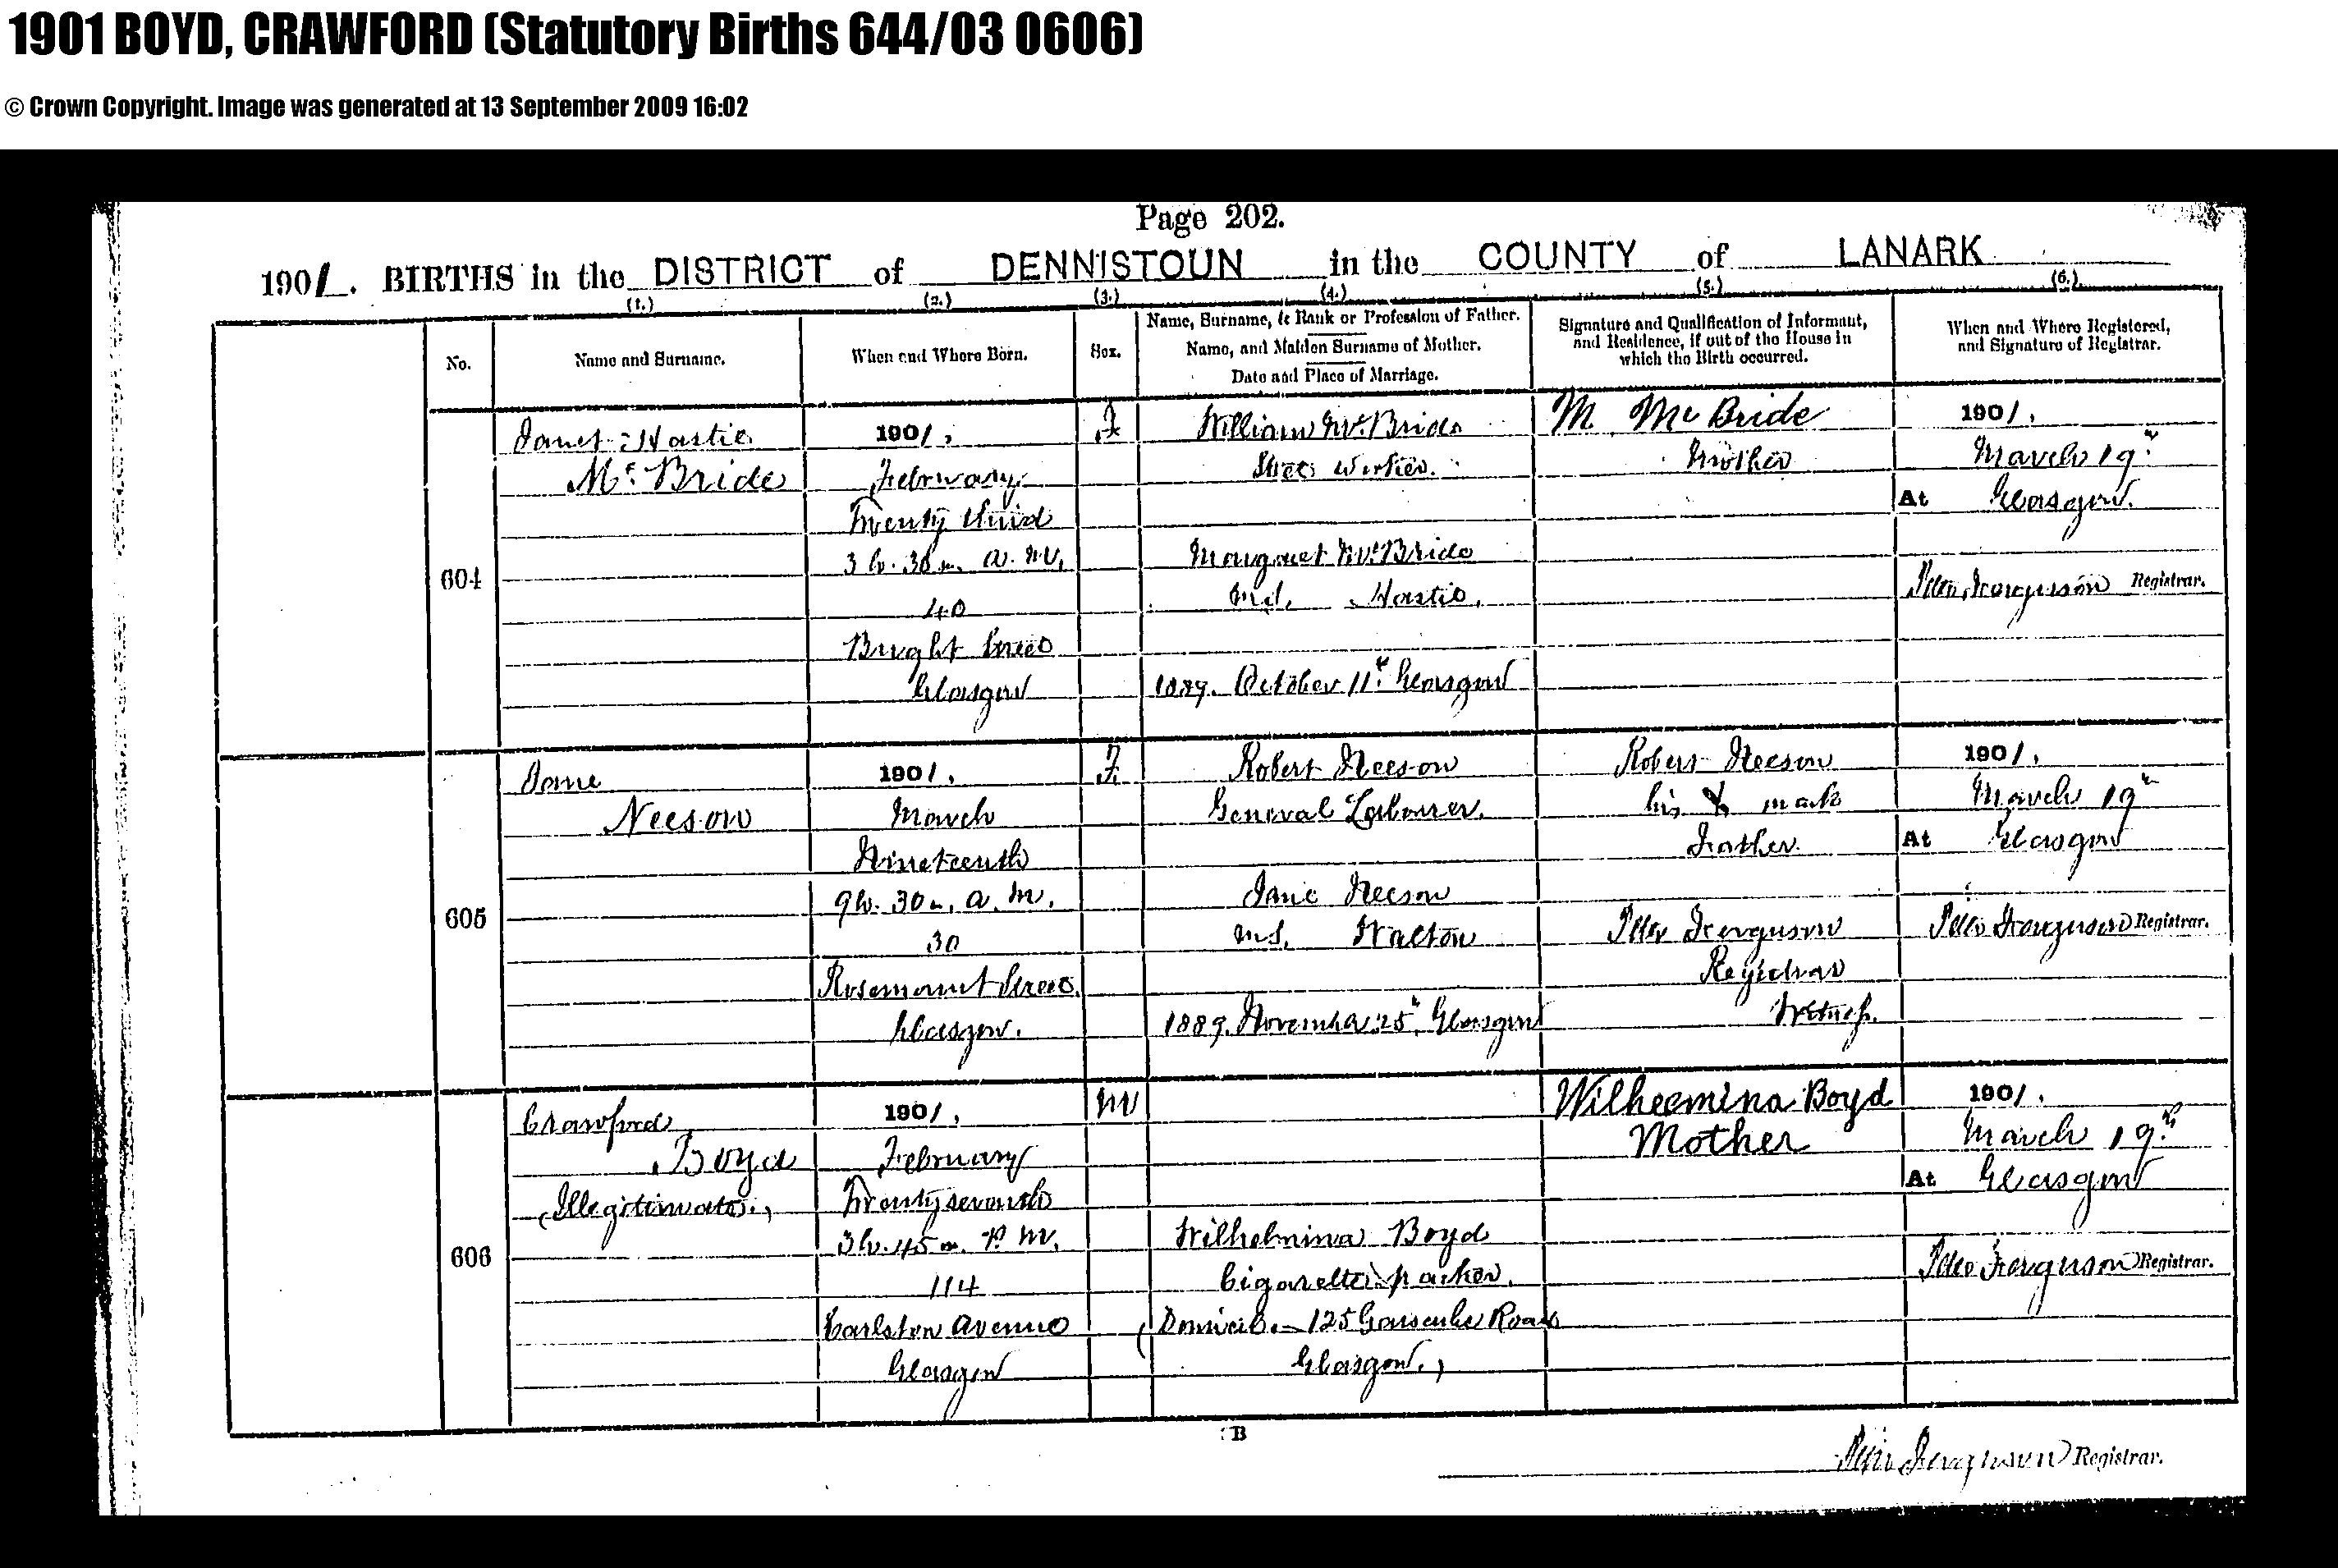 1901 BOYD, CRAWFORD (Statutory Births 644/03 0606)
© Crown Copyright. Image was generated at 13 September 2009 16:02
Page 202.
1901. BIRTHS in the DISTRICT of DENNISTOUN in the COUNTY of LANARK
(1.) (2.) (3.) (4.) (5.) (6.)
No.
Name and Surname.
When and Where Born.
Sex.
Name, Surname, & Rank or Profession of Father.
Name, and Maiden Surname of Mother.
Date and Place of Marriage.
Signature and Qualification of Informant,
and Residence, if out of the House in
which the Birth occurred.
When and Where Registered,
and Signature of Registrar.
604
Janet Hastie
McBride
1901,
February
Twenty third
3 h. 30 m. A. M.
40
Bright Street
Glasgow
F.
William McBride
Margaret McBride
M.S. Hastie.
1889. October 11th Glasgow
M. McBride
Mother
1901,
March 19th
At Glasgow.
Peter Ferguson Registrar.
605
Jane
Neeson
1901,
March
Nineteenth
9h. 30m. A. M.
30
Rosemount Street
Glasgow.
F.
Robert Neeson
General Labourer.
Jane Neeson
M.S. Walton
1889. November 25th Glasgow
Robert Neeson
his X mark
Father.
Peter Ferguson
Registrar
Witness.
1901,
March 19th
At Glasgow
Peter Ferguson Registrar.
606
Crawford
Boyd
(Illegitimate.)
1901,
February
Twenty seventh
3h. 45m. P. M.
114
Carlston Avenue
Glasgow
M
Wilhelmina Boyd
Cigarette packer.
(Domicile 125 Garscube Road
Glasgow.)
Wilhelmina Boyd
Mother
1901.
March 19th
At Glasgow
Peter Ferguson Registrar.
B
Peter Ferguson Registrar.